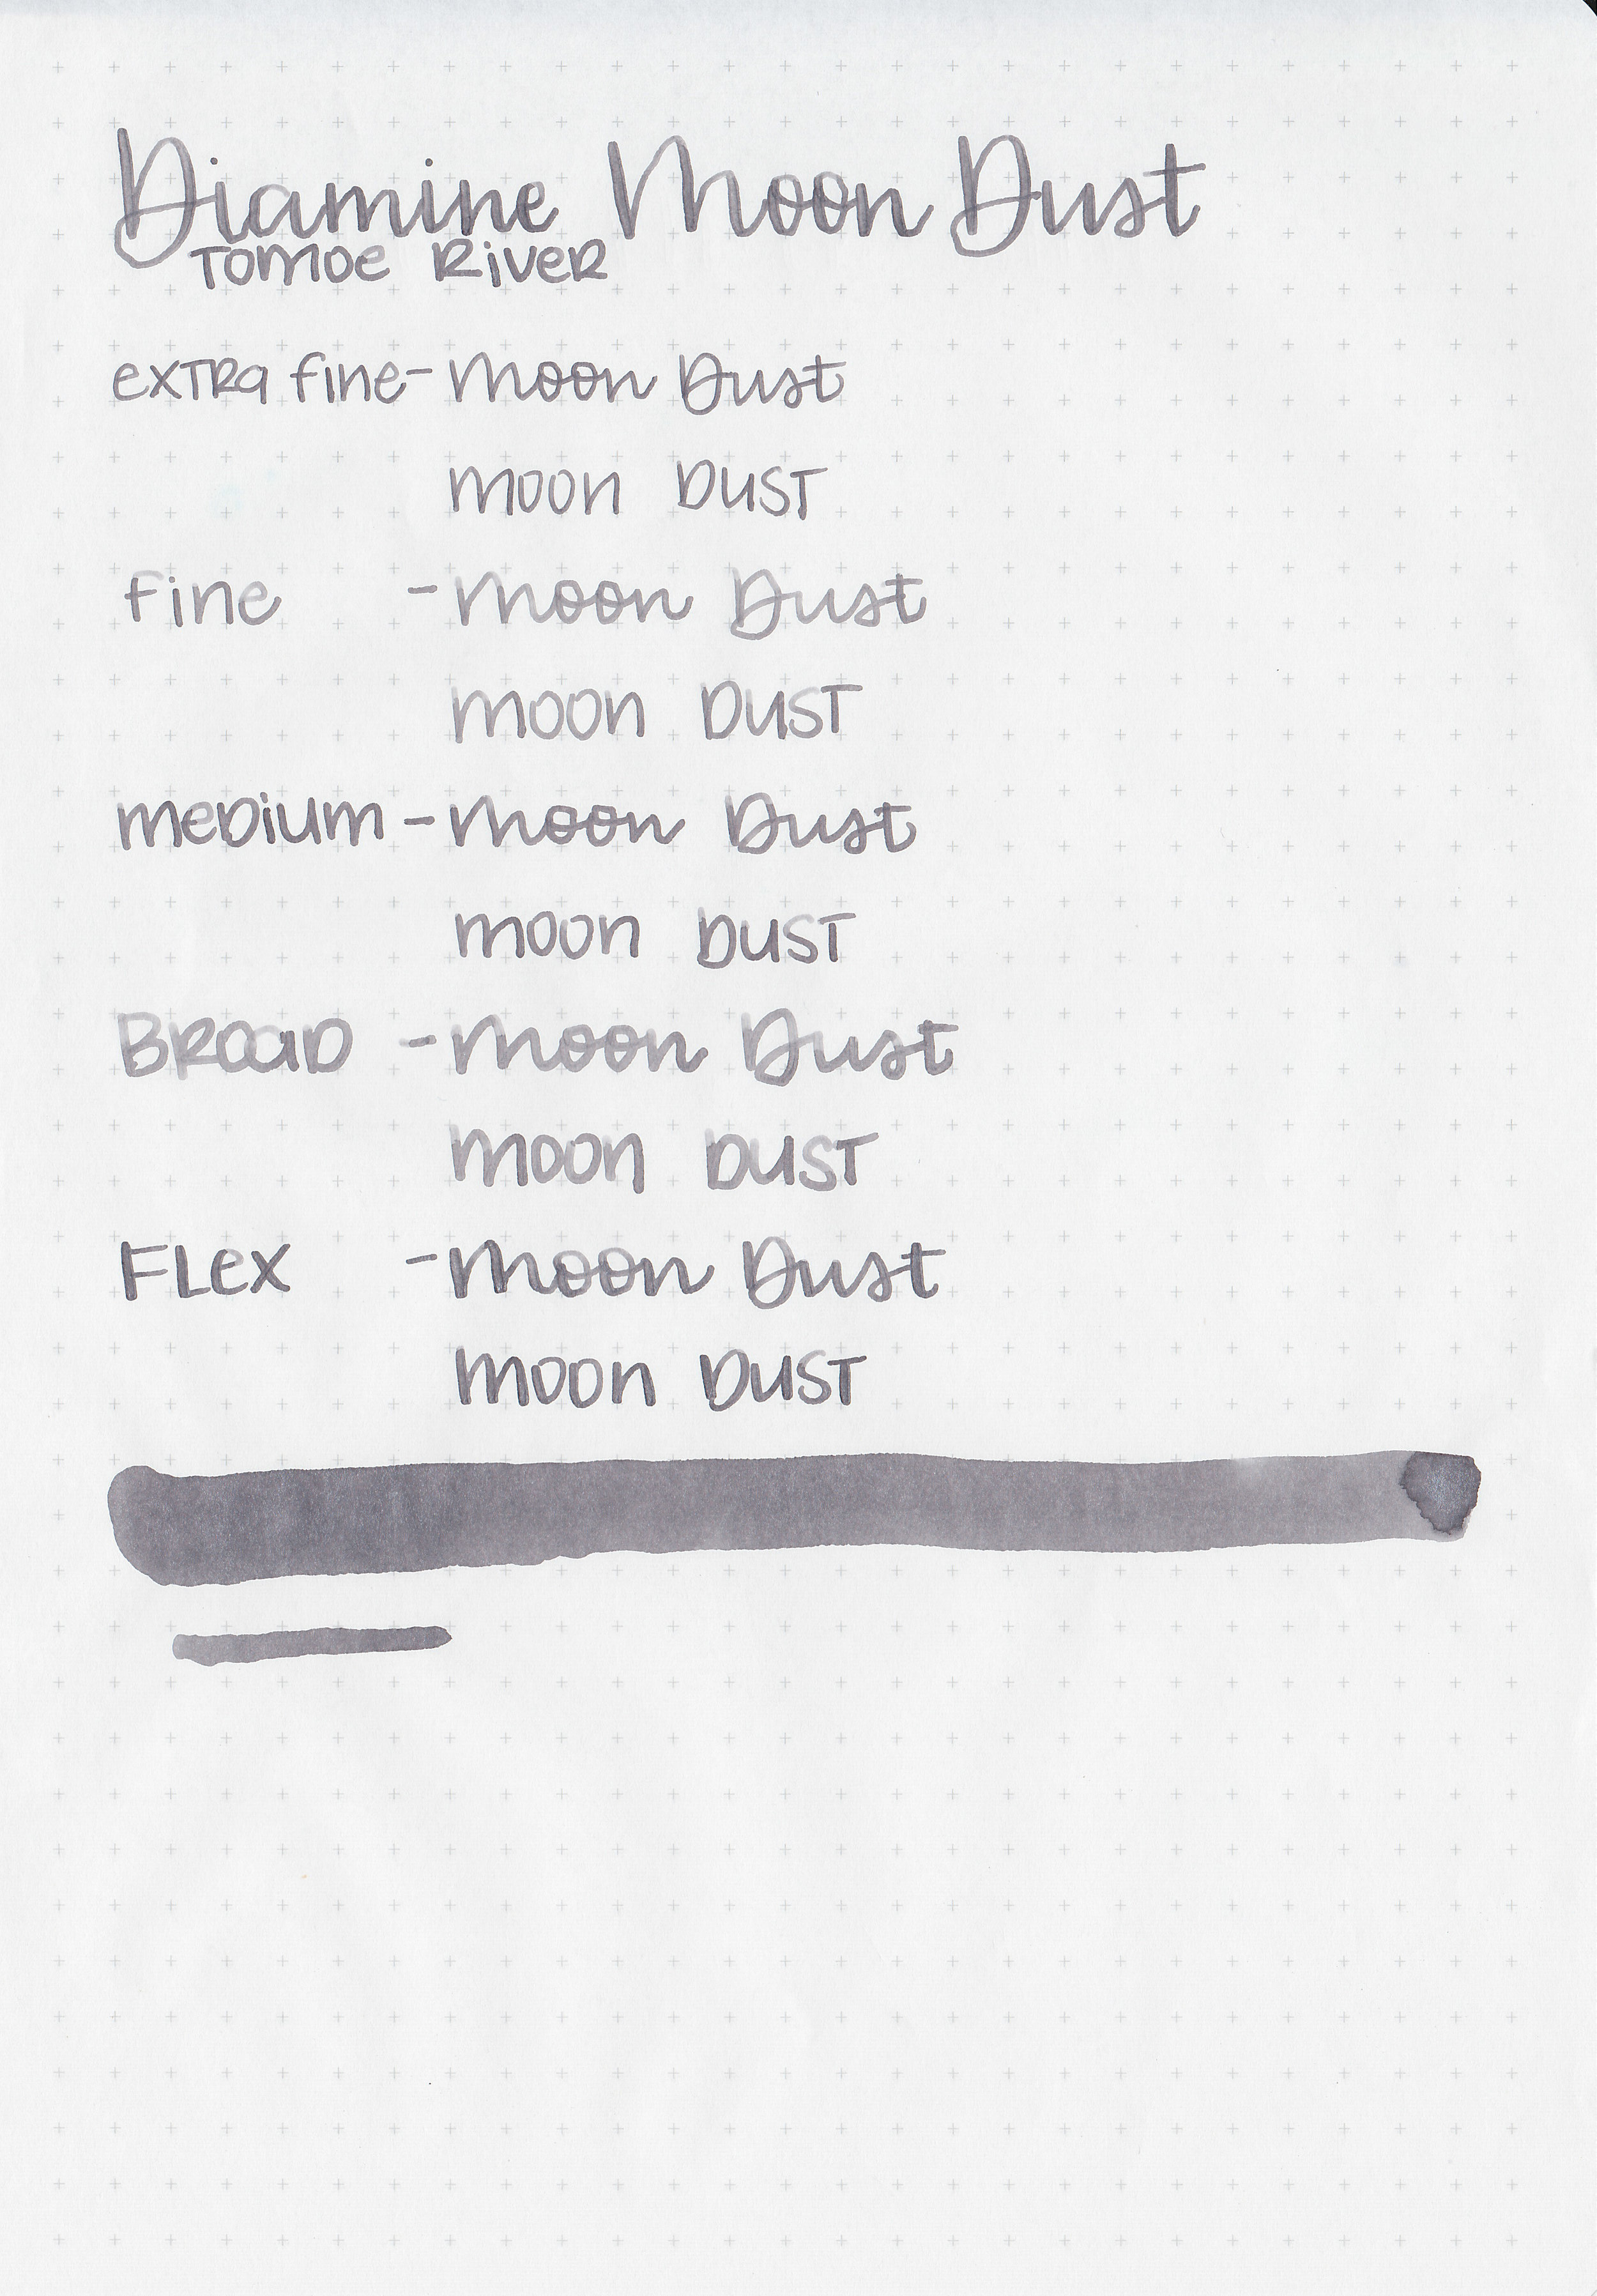 Diamine Moon Dust
Tomoe River
extra fine - Moon Dust
moon Dust
fine - Moon Dust
moon Dust
medium - Moon Dust
moon Dust
Broad - Moon Dust
moon Dust
Flex - Moon Dust
moon Dust